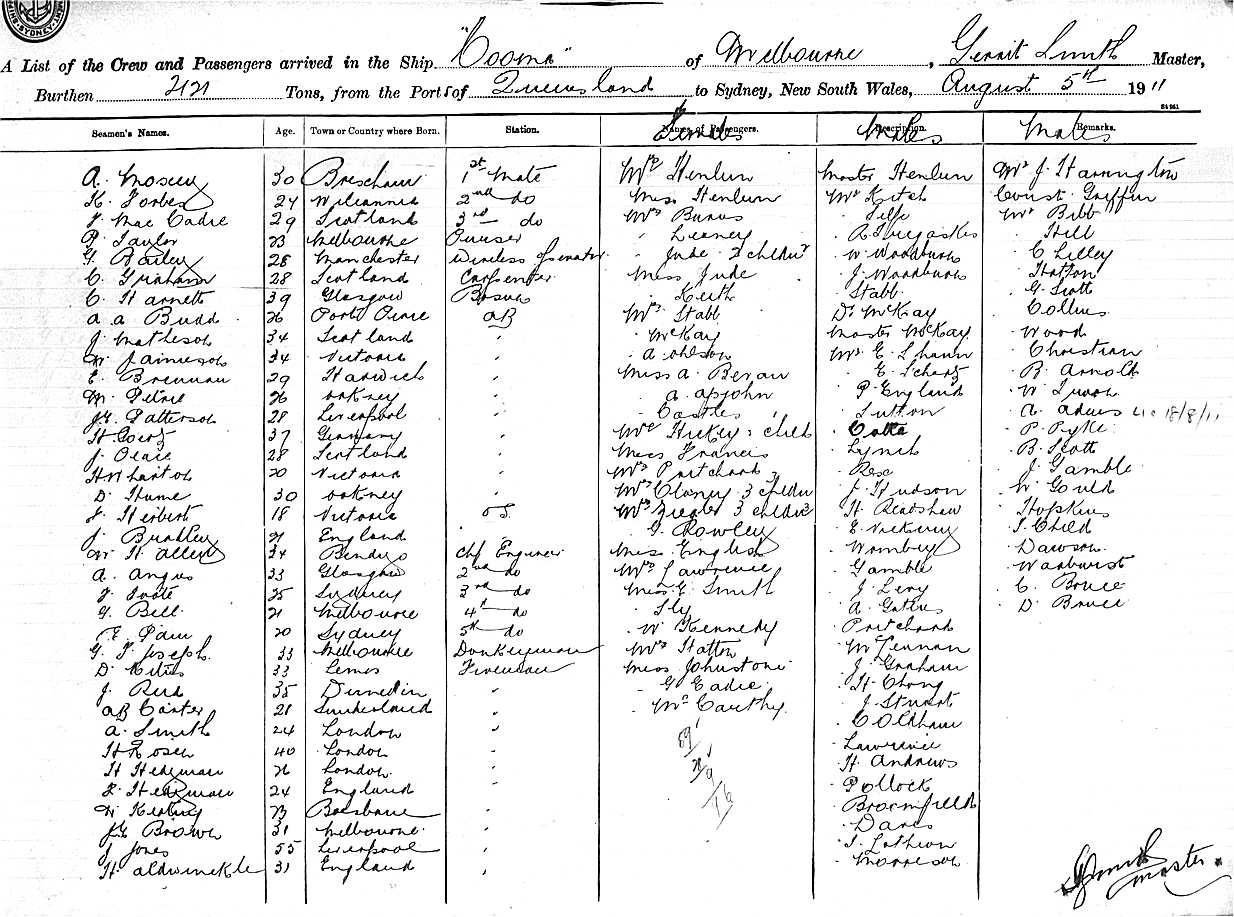 "Cooma" Melbourne Gerrit Smith
A List of the Crew and Passengers arrived in the Ship of , Master,
Burthen 2121 Tons, from the Port of Queensland to Sydney, New South Wales, August 5th 1911
Seamen's Names. Age. Town or Country where Born. Station. Names of Passengers. Females Description. Males Remarks. Males
30 1st Mate Mrs Henlun Master Henlun Mr J. Harrington
K. Forbes 24 2nd do Miss Henlun Mr Kitch Const. Griffin
J. Mac Cadie 29 Scotland 3rd do Mrs Burns Mr Bibb
P. Taylor 23 Melbourne Purser Hill
G. Bailey 28 Manchester Wireless Operator Jude 2 childn W. Woodburn C Lilley
C. Graham 28 Scotland Carpenter Miss Jude J. Woodburn Hatton
C. Harnett 39 Glasgow Bosun Keith Stabb G. Scott
A. A. Budd 26 Port Pirie AB Mrs Stabb Dr McKay Collins
J. Matheson 34 Scotland " McKay Master McKay Wood
W. Jamieson 34 Victoria " A. Ohlson Mr E. Christian
E. Brennan 29 Harwich " Miss A. Beran E. B. Arnold
M. Petrie 26 Orkney " A. Apjohn P. England W.
J. G. Patterson 28 Liverpool " Castles Sutton A. Adams 18/8/11
37 Germany " Mrs Hickey & child P. Pyke
28 Scotland " Miss Francis Lynch B. Scott
H Wharton 20 Victoria " Mrs Pritchard Rex J. Gamble
D. Hume 30 Orkney " Mrs Clancy 3 childn J. Hudson W. Gould
Herbert 18 Victoria OS. Mrs 3 childn H. Readshaw Hopkins
J. Bradley 21 England G. Rowley E. Vickery Child
W. H. Allen 34 Bendigo Chf Engineer Miss English Dawson
A. Angus 33 Glasgow 2nd do Mrs Lawrence Gamble Warburst
J. Foote 25 Sydney 3rd do Miss E. Smith J. Levy C. Bruce
G. Bell 21 Melbourne 4th do Sly D. Bruce
20 Sydney 5th do W. Kennedy Pritchard
G. F. Joseph 33 Melbourne Donkeyman Mrs Hatton McLennan
D. 33 Lemos Fireman Miss Johnstone J. Graham
J. Reid 35 Dunedin " G. Eadie H. Chong
AB Carter 21 Sunderland " McCarthy J. Stuart
A. Smith 24 London " C Oldham
H Rosen 40 London " 59 Lawrence
H Hedgman 26 London " 21 H. Andrews
Hedgman 24 England " 9 Pollock
W. Keating 23 Brisbane " 16 Broomfield
J. G. Brown 31 Melbourne "
J Jones 55 Liverpool " Lothian
H. Aldwinckle 31 England " Morrison
Smith Master.